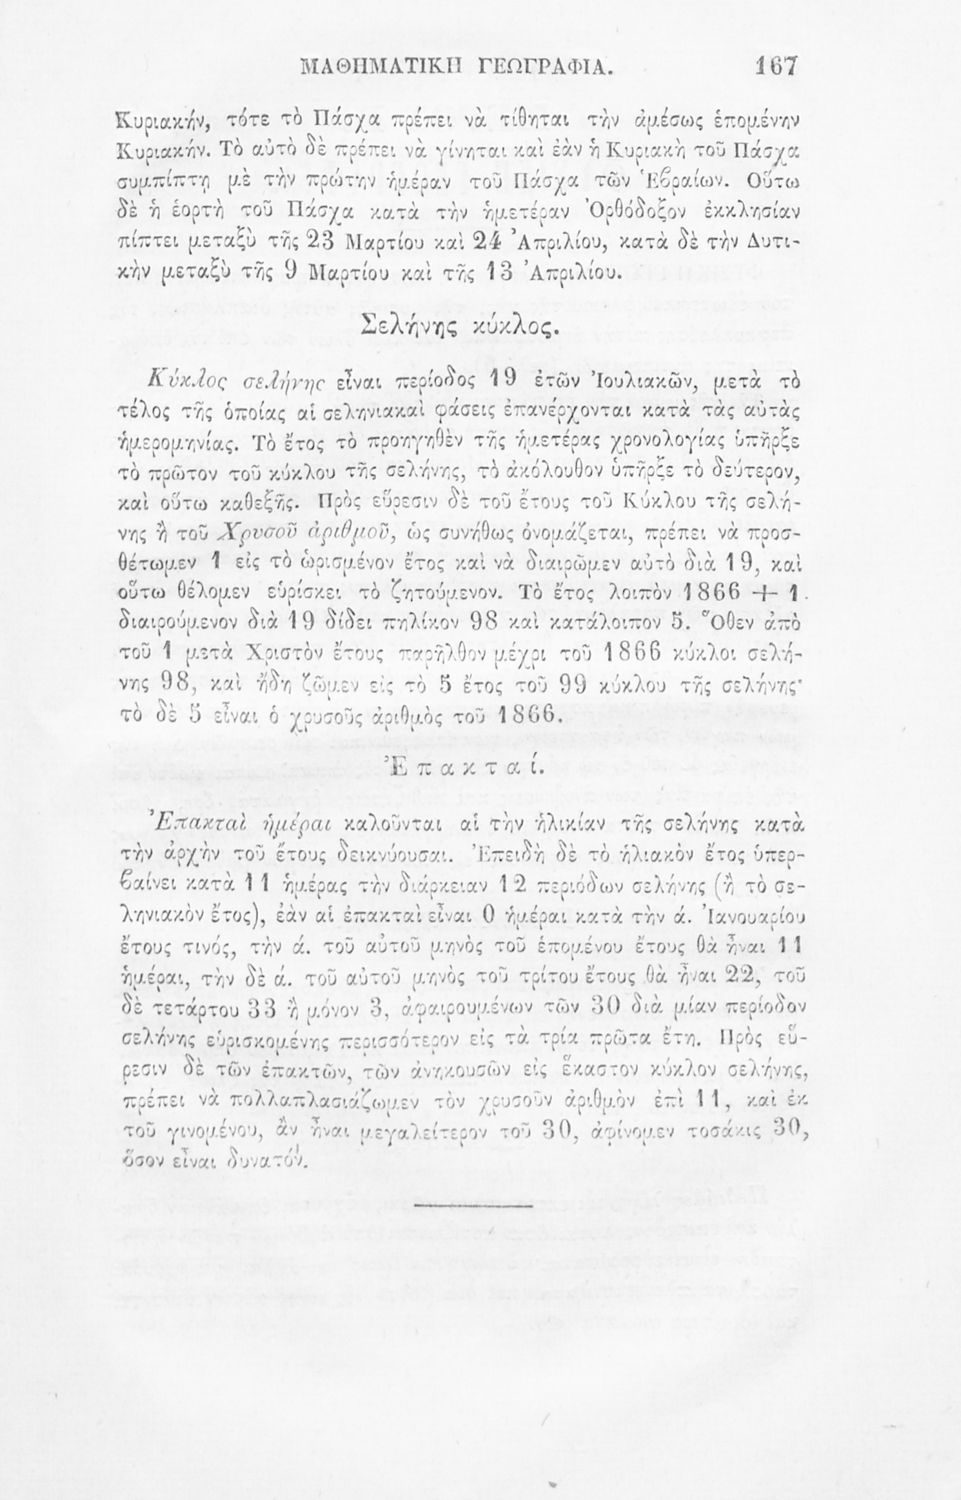 ΜΑΘΗΜΑΤΙΚΗ ΓΕΩΓΡΑΦΙΑ. 167
Κυριακήν, τότε τὸ Πάσχα πρέπει νὰ τίθηται τὴν ἀμέσως ἑπομένην
Κυριακήν. Τὸ αὐτὸ δὲ πρέπει νὰ γίνηται καὶ ἐὰν ἡ Κυριακὴ τοῦ Πάσχα
συμπίπτῃ μὲ τὴν πρώτην ἡμέραν τοῦ Πάσχα τῶν Ἑβραίων. Οὕτω
δὲ ἡ ἑορτὴ τοῦ Πάσχα κατὰ τὴν ἡμετέραν Ὀρθόδοξον ἐκκλησίαν
πίπτει μεταξὺ τῆς 23 Μαρτίου καὶ 24 Ἀπριλίου, κατὰ δὲ τὴν Δυτι-
κὴν μεταξὺ τῆς 9 Μαρτίου καὶ τῆς 13 Ἀπριλίου.
Σελήνης κύκλος.
Κύκλος σελήνης εἶναι περίοδος 19 ἐτῶν Ἰουλιακῶν, μετὰ τὸ
τέλος τῆς ὁποίας αἱ σεληνιακαὶ φάσεις ἐπανέρχονται κατὰ τὰς αὐτὰς
ἡμερομηνίας. Τὸ ἔτος τὸ προηγηθὲν τῆς ἡμετέρας χρονολογίας ὑπῆρξε
τὸ πρῶτον τοῦ κύκλου τῆς σελήνης, τὸ ἀκόλουθον ὑπῆρξε τὸ δεύτερον,
καὶ οὕτω καθεξῆς. Πρὸς εὕρεσιν δὲ τοῦ ἔτους τοῦ Κύκλου τῆς σελή-
νης ἢ τοῦ Χρυσοῦ ἀριθμοῦ, ὡς συνήθως ὀνομάζεται, πρέπει νὰ προσ-
θέτωμεν 1 εἰς τὸ ὡρισμένον ἔτος καὶ νὰ διαιρῶμεν αὐτὸ διὰ 19, καὶ
οὕτω θέλομεν εὑρίσκει τὸ ζητούμενον. Τὸ ἔτος λοιπὸν 1866 + 1
διαιρούμενον διὰ 19 δίδει πηλίκον 98 καὶ κατάλοιπον 5. Ὅθεν ἀπὸ
τοῦ 1 μετὰ Χριστὸν ἔτους παρῆλθον μέχρι τοῦ 1866 κύκλοι σελή-
νης 98, καὶ ἤδη ζῶμεν εἰς τὸ 5 ἔτος τοῦ 99 κύκλου τῆς σελήνης·
τὸ δὲ 5 εἶναι ὁ χρυσοῦς ἀριθμὸς τοῦ 1866.
Ἐπακταί.
Ἐπακταὶ ἡμέραι καλοῦνται αἱ τὴν ἡλικίαν τῆς σελήνης κατὰ
τὴν ἀρχὴν τοῦ ἔτους δεικνύουσαι. Ἐπειδὴ δὲ τὸ ἡλιακὸν ἔτος ὑπερ-
βαίνει κατὰ 11 ἡμέρας τὴν διάρκειαν 12 περιόδων σελήνης (ἢ τὸ σε-
ληνιακὸν ἔτος), ἐὰν αἱ ἐπακταὶ εἶναι 0 ἡμέραι κατὰ τὴν ά. Ἰανουαρίου
ἔτους τινός, τὴν ά. τοῦ αὐτοῦ μηνὸς τοῦ ἑπομένου ἔτους θὰ ἦναι 11
ἡμέραι, τὴν δὲ ά. τοῦ αὐτοῦ μηνὸς τοῦ τρίτου ἔτους θὰ ἦναι 22, τοῦ
δὲ τετάρτου 33 ἢ μόνον 3, ἀφαιρουμένων τῶν 30 διὰ μίαν περίοδον
σελήνης εὑρισκομένης περισσότερον εἰς τὰ τρία πρῶτα ἔτη. Πρὸς εὕ-
ρεσιν δὲ τῶν ἐπακτῶν, τῶν ἀνηκουσῶν εἰς ἕκαστον κύκλον σελήνης,
πρέπει νὰ πολλαπλασιάζωμεν τὸν χρυσοῦν ἀριθμὸν ἐπὶ 11, καὶ ἐκ
τοῦ γινομένου, ἂν ἦναι μεγαλείτερον τοῦ 30, ἀφίνομεν τοσάκις 30,
ὅσον εἶναι δυνατόν.